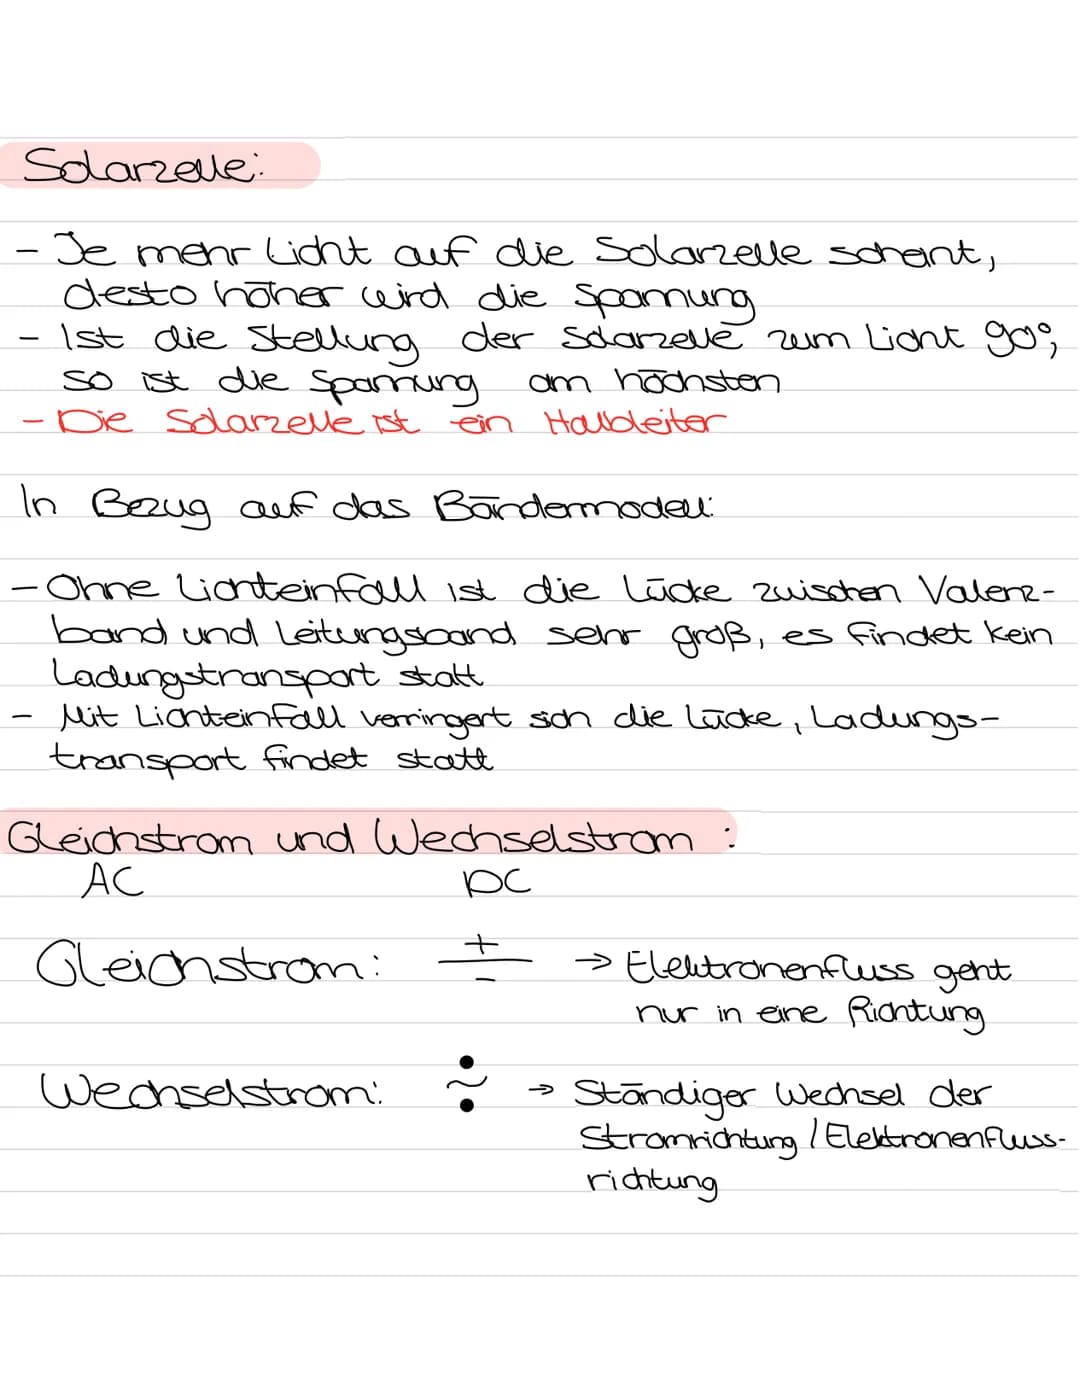 Solarzelle:
- Je mehr Licht auf die Solarzelle scheint,
desto höher wird die Spannung
- Ist die Stellung der Solarzelle zum Licht 90°,
so ist die Spannung am höchsten
- Die Solarzelle ist ein Halbleiter
In Bezug auf das Bändermodell:
- Ohne Lichteinfall ist die Lücke zwischen Valenz-
band und Leitungsband sehr groß, es findet kein
Ladungstransport statt
- Mit Lichteinfall verringert sich die Lücke, Ladungs-
transport findet statt
Gleichstrom und Wechselstrom:
AC DC
Gleichstrom: + − → Elektronenfluss geht
nur in eine Richtung
Wechselstrom: ~ → Ständiger Wechsel der
Stromrichtung / Elektronenfluss-
richtung